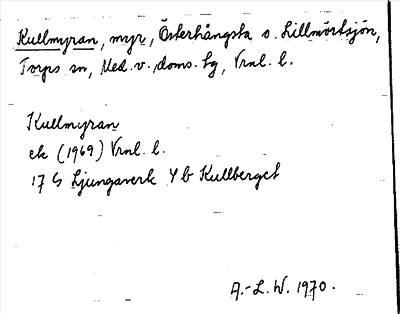 Kullmyran, myr, Österhångsta o. Lillmörtsjön,
Torps sn, Med. v. doms. hg, Vrnl. l.
Kullmyran
ek (1969) Vrnl. l.
17 G Ljungaverk 4 b Kullberget
A.-L. W. 1970.